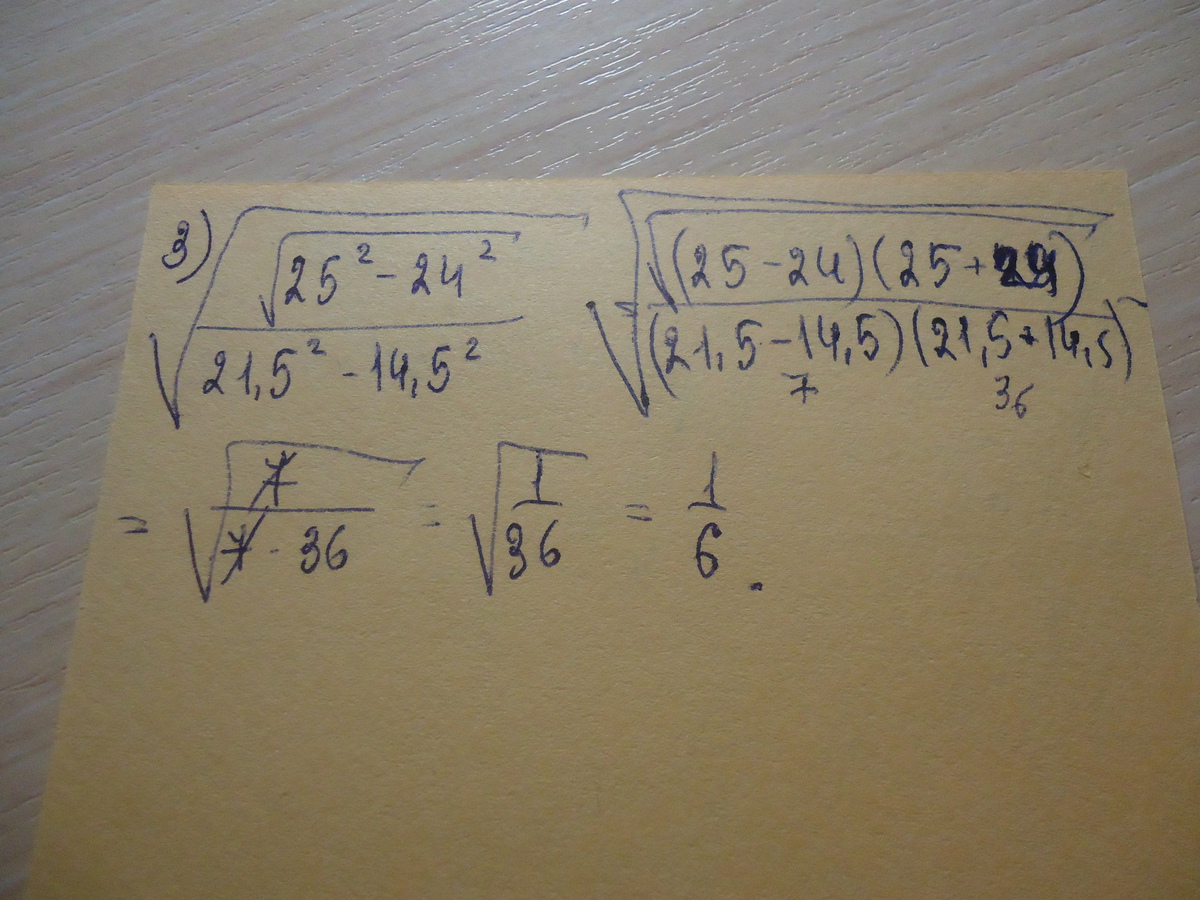 3) √(√(25² - 24²) / (21,5² - 14,5²)) √(√((25 - 24)(25 + 24)) / ((21,5 - 14,5)(21,5 + 14,5)))
7 36
= √(7 / (7 · 36)) = √(1/36) = 1/6.